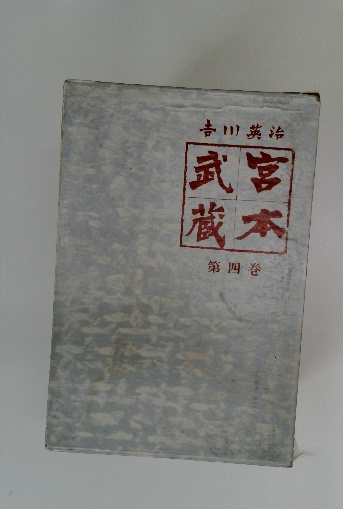 吉川英治
宮本
武蔵
第四巻